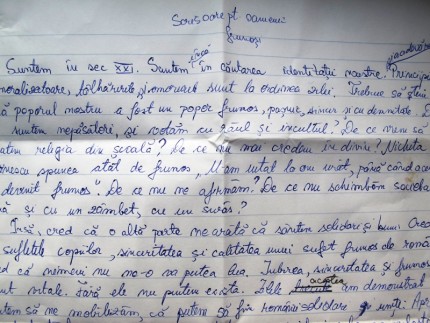 Scrisoare pt oameni
frumoși
Suntem în sec XXI. Suntem încă în căutarea identității noastre. Principii
moralizatoare, tâlhăriile, omorurile sunt la ordinea zilei. Trebuie să știe
că poporul nostru a fost un popor frumos, pașnic, sincer și cu demnitate. D
suntem nepăsători, și votăm cu răul și incultul? De ce vrem să
atem religia din școală? De ce nu mai credem în divin? Nichita
ănescu spunea atât de frumos, "M-am uitat la om urât, până când ace
devenit frumos". De ce nu ne afirmăm? De ce nu schimbăm societa
ă și cu un zâmbet, cu un surâs?
Însă, cred că o altă parte ne arată că suntem solidari și buni. Cred
sufletul copiilor, sinceritatea și calitatea unui suflet frumos de român
ed că nimeni nu ne-o va putea lua. Iubirea, sinceritatea și frumos
unt vitale. Fără ele nu putem exista. Zilele acestea am demonstrat
utem să ne mobilizăm, că putem să fim români solidari și uniți. Apr